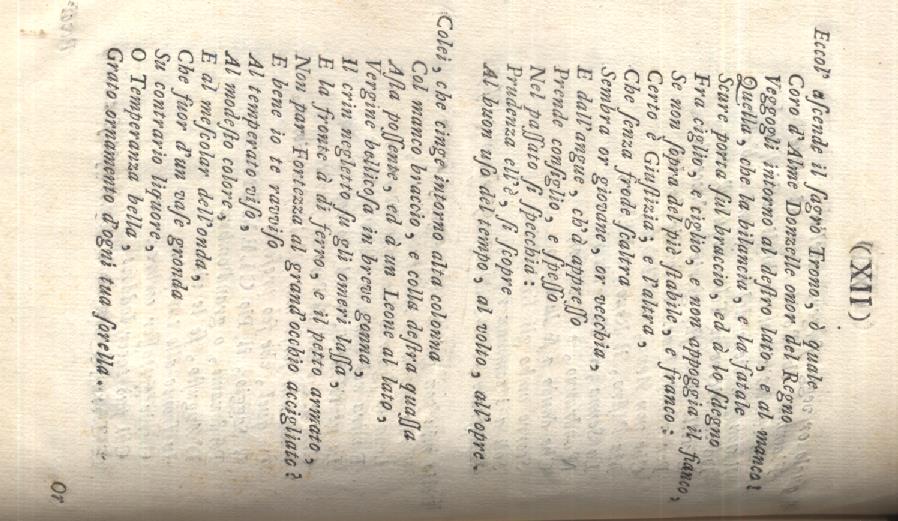 (CXII)
Eccol' aſcende il ſagro Trono, ò quale
Coro d'Alme Donzelle onor del Regno
Veggogli intorno al deſtro lato, e al manco!
Quella, che la bilancia, e la fatale
Scure porta ſul braccio, ed à lo ſdegno
Fra ciglio, e ciglio, e non appoggia il fianco,
Se non ſopra del piè ſtabile, e franco:
Certo è Giuſtizia, e l'altra,
Che ſenza frode ſcaltra
Sembra or giovane, or vecchia,
E dall'angue, ch'à appreſſo
Prende conſiglio, e ſpeſſo
Nel paſſato ſi ſpecchia:
Prudenza ell'è, ſi ſcopre
Al buon uſo del tempo, al volto, all'opre.
Colei, che cinge intorno alta colonna
Col manco braccio, e colla deſtra quaſſa
Aſta poſſente, ed à un Leone al lato,
Vergine bellicoſa in breve gonna,
Il crin negletto ſu gli omeri laſſa,
E la fronte à di ferro, e il petto armato,
Non par Fortezza al grand'occhio accigliato?
E bene io te ravviſo
Al temperato viſo,
Al modeſto colore,
E al meſcolar dell'onda,
Che fuor d'un vaſe gronda
Su contrario liquore,
O Temperanza bella,
Grato ornamento d'ogni tua ſorella.
Or